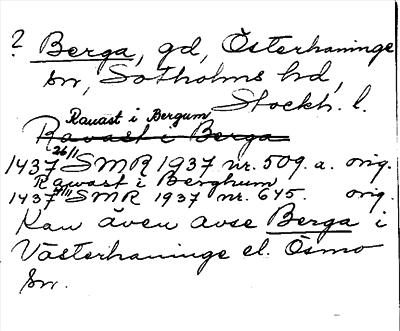 ? Berga, gd, Österhaninge
sn, Sotholms hd,
Stockh. l.
Rauast i Bergum
Ravast i Berga
1437 26/1 SMR 1937 nr. 509. a. orig.
Rawast i Berghum
1437 SMR 1937 nr. 645. orig.
Kan även avse Berga i
Västerhaninge el. Ösmo
sn.